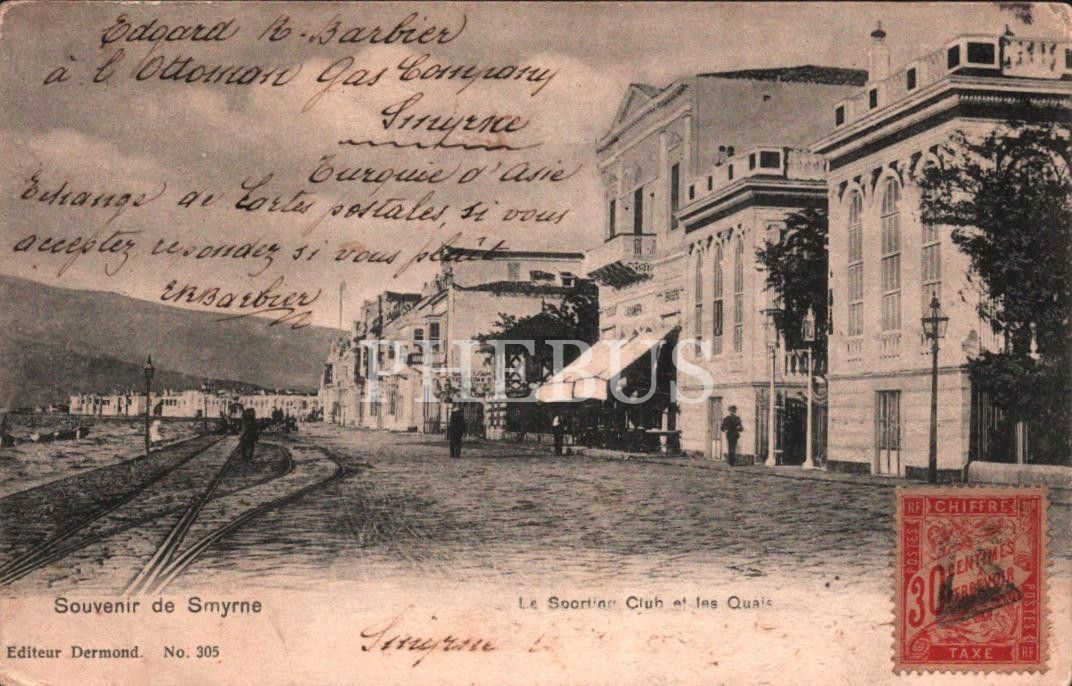 Edgard R. Barbier
à l'Ottoman Gas Company
Smyrne
Turquie d'Asie
Echange de Cartes postales, si vous
acceptez repondez si vous plaît
ERBarbier
PHEBUS
Souvenir de Smyrne
Le Sporting Club et les Quais
Smyrne
Editeur Dermond. No. 305
RF CHIFFRE RF
POSTES
30
CENTIMES
PERCEVOIR
POSTES
TAXE RF